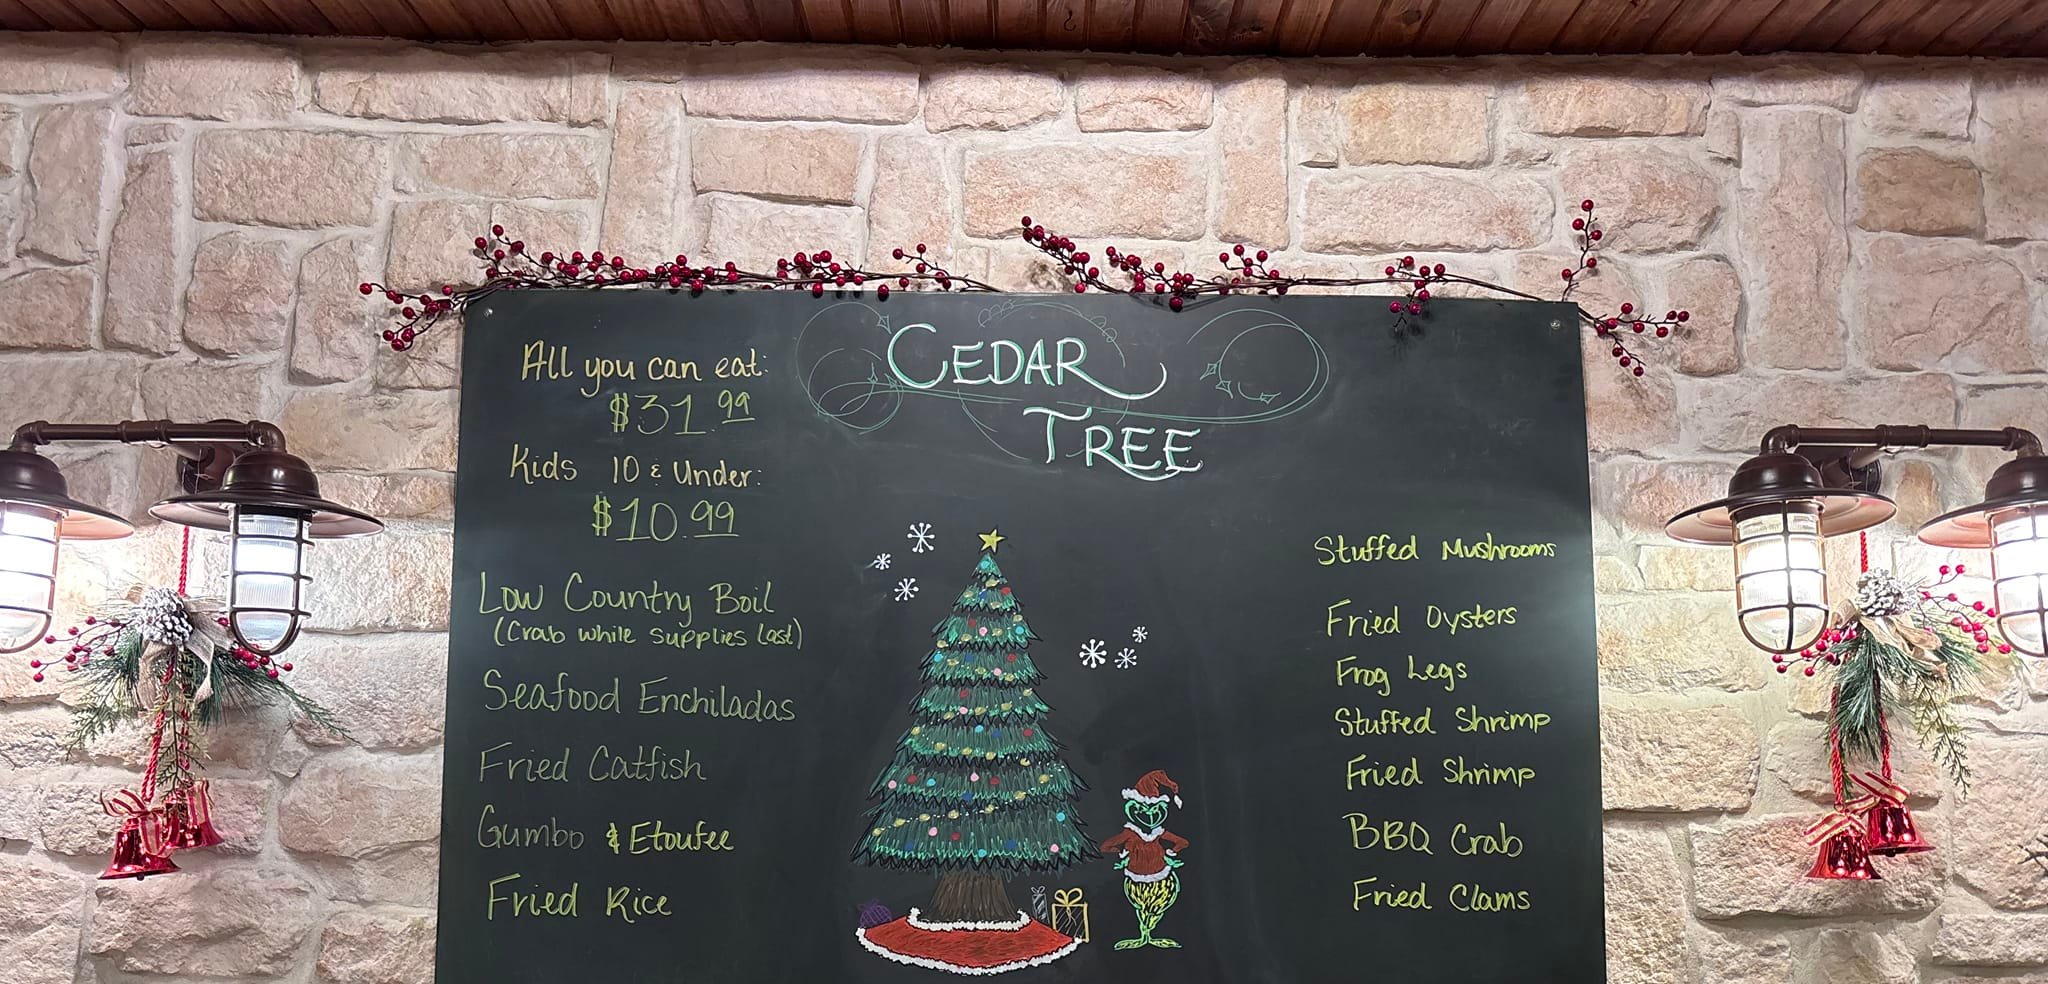 CEDAR
TREE
All you can eat:
$31.99
Kids 10 & Under:
$10.99
Low Country Boil
(Crab while supplies last)
Seafood Enchiladas
Fried Catfish
Gumbo & Etoufee
Fried Rice
Stuffed Mushrooms
Fried Oysters
Frog Legs
Stuffed Shrimp
Fried Shrimp
BBQ Crab
Fried Clams